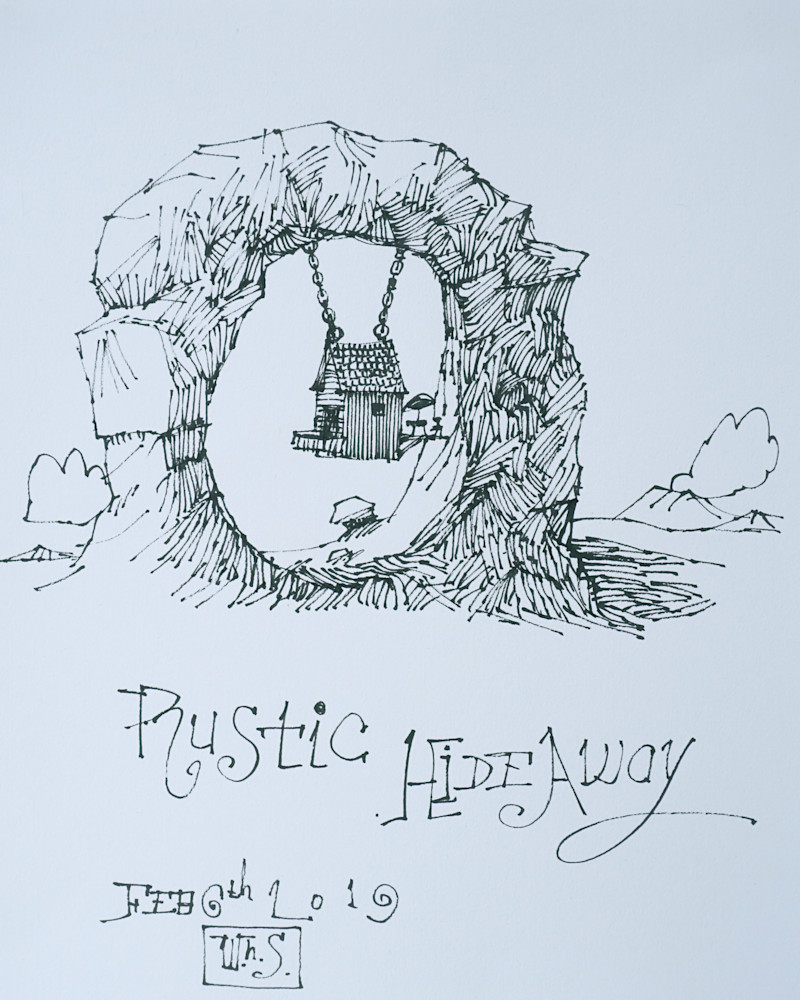 Rustic HideAway
FEB 6th 2019
W.h.S.